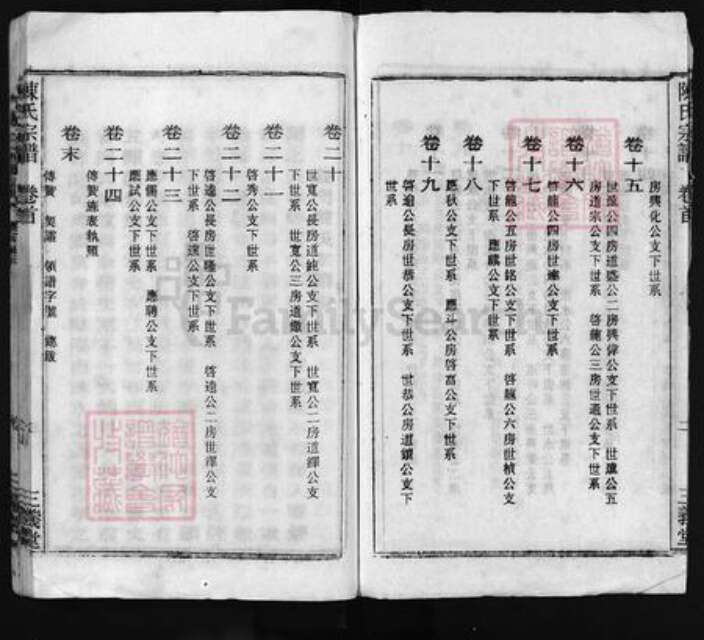 陳氏宗譜 卷首
三義堂
房興化公支下世系
卷十五
世遠公四房道盛公二房興偉公支下世系 世遠公五
房道宗公支下世系 啓龍公三房世通公支下世系
卷十六
啓龍公四房世達公支下世系
卷十七
啓龍公五房世銘公支下世系 啓龍公六房世楨公支
下世系 應麟公支下世系
卷十八
應秋公支下世系 應斗公房啓富公支下世系
卷十九
啓逾公長房世恭公支下世系 世恭公房道鎮公支下
世系
卷二十
世寬公長房道純公支下世系 世寬公二房道鐸公支
下世系 世寬公三房道鏾公支下世系
卷二十一
啓秀公支下世系
卷二十二
啓遠公長房世隆公支下世系 啓遠公二房世澤公支
下世系 啓遠公支下世系
卷二十三
應儒公支下世系 應聘公支下世系
應試公支下世系
卷二十四
傳贊旌表執照
卷末
傳贊 契譜 領譜字號 總跋
陳氏宗譜 卷首
三義堂
FamilySearch